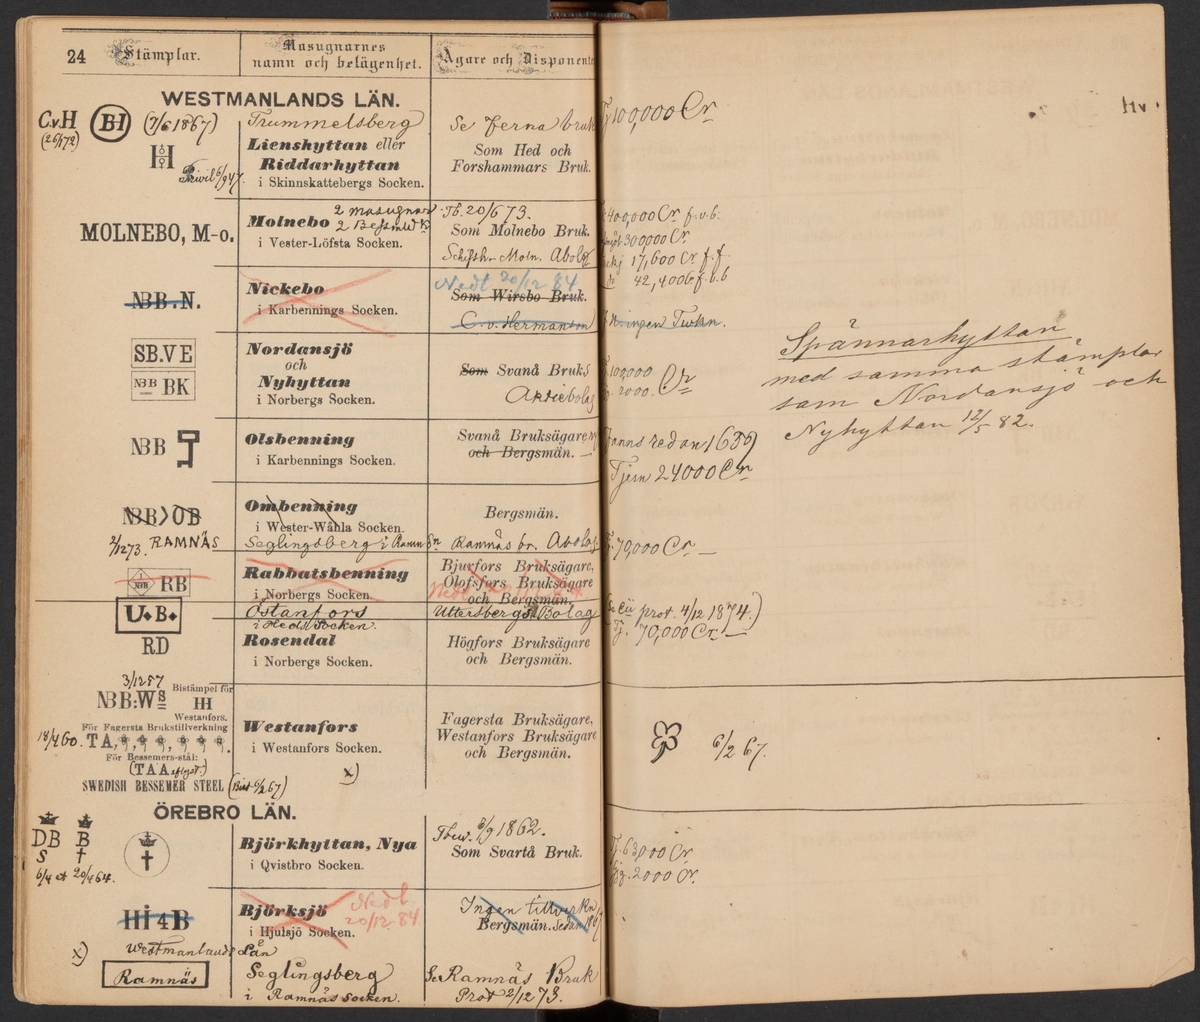 24 Stämplar. Masugnarnes namn och belägenhet. Ägare och Disponente
WESTMANLANDS LÄN.
C.v.H (26/172) BI (7/6 1867) Trummelsberg Se Ferna bruk Tj 100,000 Cr
H Privil 6/9 47.
Lienshyttan eller
Riddarhyttan
i Skinnskattebergs Socken.
Som Hed och
Forshammars Bruk.
MOLNEBO, M-o.
Molnebo 2 masugnar
i Vester-Löfsta Socken.
Tb. 20/6 73.
Som Molnebo Bruk.
Moln. Abolag
400,000 Cr f.v.b.
300000 Cr
17,600 Cr f.f.
42,400 f.v.b
NBB.N.
Nickebo
i Karbennings Socken.
Nedl 20/12 84
Som Wirsbo Bruk.
C. v. Hermanson
ingen Twkn.
SB.VE
NBB BK
Nordansjö
och
Nyhyttan
i Norbergs Socken.
Som Svanå Bruks
Aktiebolag
100,000
2000. Cr
Spännarhyttan
med samma stämplar
som Nordansjö och
Nyhyttan 12/5 82.
NBB
Olsbenning
i Karbennings Socken.
Svanå Bruksägare
och Bergsmän.
fanns redan 1689)
Tjern 24000 Cr
NBB OB
Ombenning
i Wester-Wåhla Socken.
Bergsmän.
2/12 73. RAMNÄS Seglingsberg i Ramn Sn Ramnäs br. Abolag 70,000 Cr —
NBB RB
Rabbatsbenning
i Norbergs Socken.
Bjurfors Bruksägare,
Olofsfors Bruksägare
och Bergsmän.
U.B.
Östanfors
i Heds Socken.
Uttersbergs Bolag
prot. 4/12 1874.)
Tj. 70,000 Cr. —
RD
Rosendal
i Norbergs Socken.
Högfors Bruksägare
och Bergsmän.
3/12 57
NBB:Ws Bistämpel för
HI
Westanfors.
För Fagersta Brukstillverkning
18/4 60. TA,
För Bessemers-stål:
(TAA)
SWEDISH BESSEMER STEEL (6/2 67)
Westanfors
i Westanfors Socken.
x)
Fagersta Bruksägare,
Westanfors Bruksägare
och Bergsmän.
6/2 67.
ÖREBRO LÄN.
DB B
S †
6/4 et 20/4 64.
†
Björkhyttan, Nya
i Qvistbro Socken.
9/9 1862.
Som Svartå Bruk.
63,000 Cr
2000 Cr.
HI4B
Björksjö
i Hjulsjö Socken.
Nedl
20/12 84
Ingen tillverkn
Bergsmän. sedan 1867
x) Westmanlands Län
Ramnäs
Seglingsberg
i Ramnäs Socken.
Se Ramnäs Bruk
Prot 2/12 73.